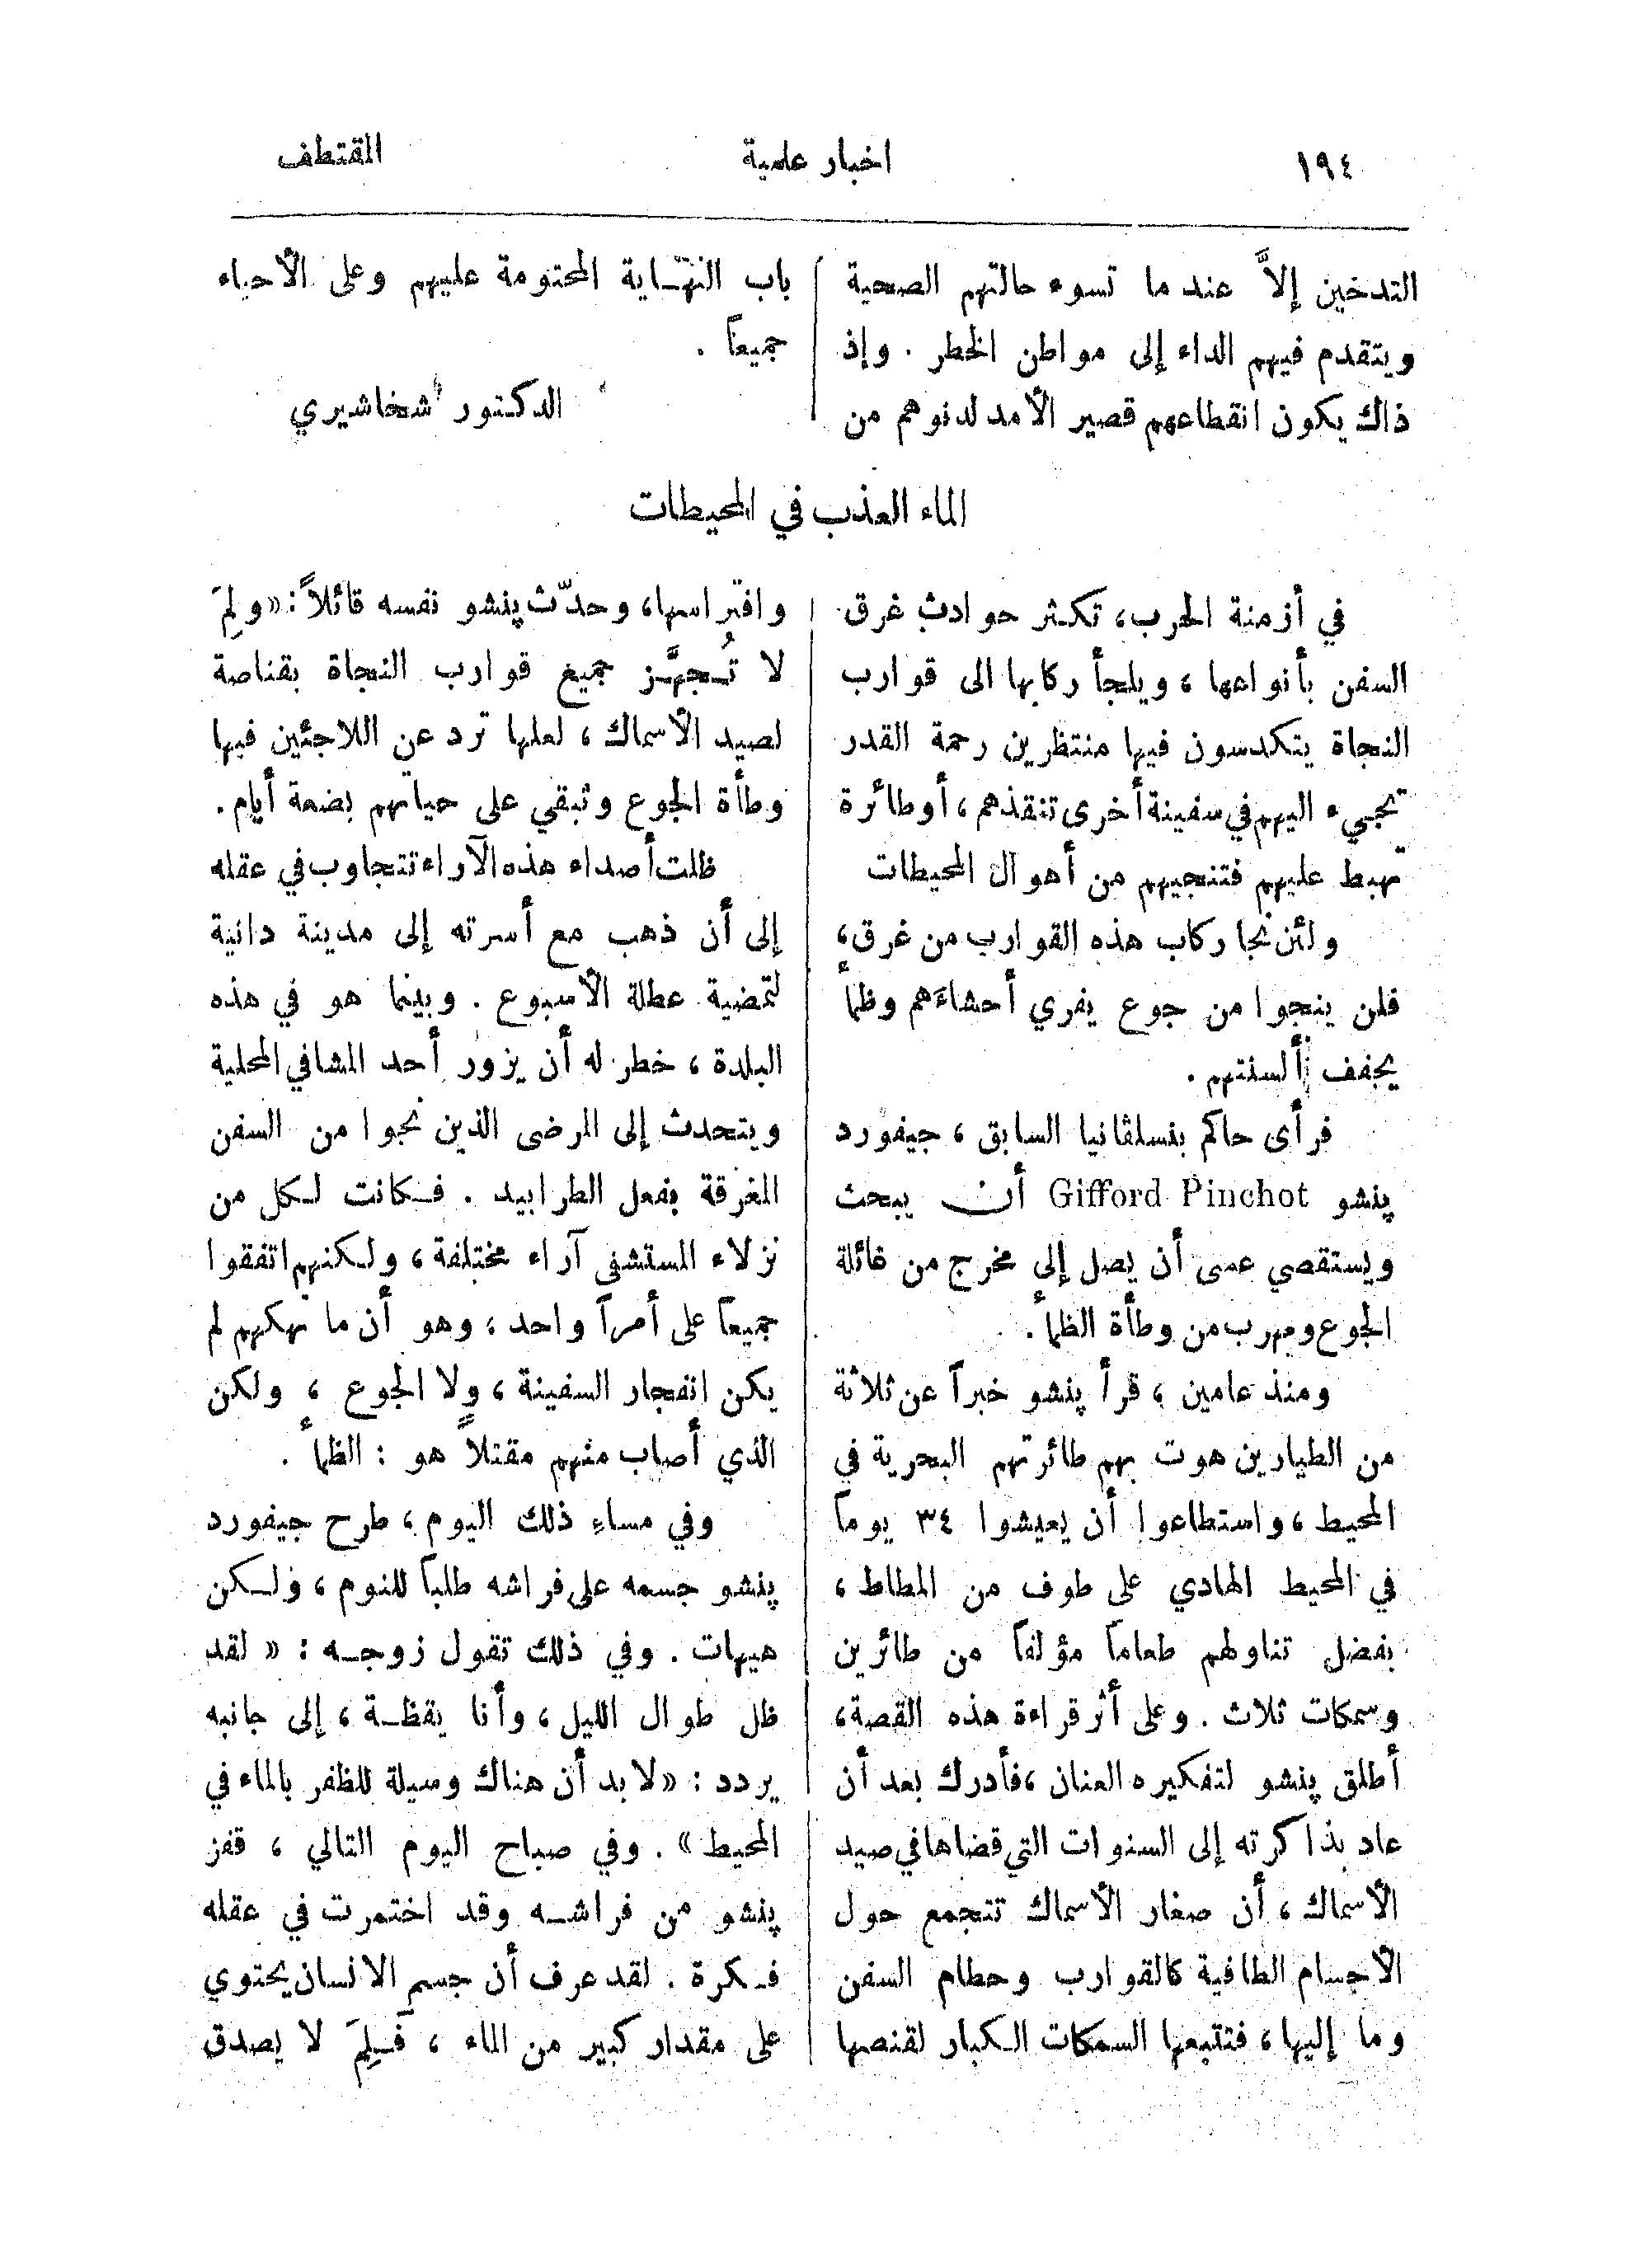 ١٩٤
اخبار علمية
المقتطف
التدخين إلاَّ عند ما تسوء حالتهم الصحية
ويتقدم فيهم الداء إلى مواطن الخطر . وإذ
ذاك يكون انقطاعهم قصير الأمد لدنوهم من
باب النهاية المحتومة عليهم وعلى الأحياء
جميعاً .
الدكتور شخاشيري
الماء العذب في المحيطات
في أزمنة الحرب، تكثر حوادث غرق
السفن بأنواعها ، ويلجأ ركابها الى قوارب
النجاة يتكدسون فيها منتظرين رحمة القدر
تجيء اليهم في سفينة أخرى تنقذهم ، أو طائرة
تهبط عليهم فتنجيهم من أهوال المحيطات
ولئن نجا ركاب هذه القوارب من غرق،
فلن ينجوا من جوع يفري أحشاءَهم وظمأ
يجفف ألسنتهم .
فرأى حاكم بنسلڤانيا السابق ، جيفورد
پنشو Gifford Pinchot أن يبحث
ويستقصي عسى أن يصل إلى مخرج من غائلة
الجوع ومهرب من وطأة الظمأ .
ومنذ عامين ، قرأ پنشو خبراً عن ثلاثة
من الطيارين هوت بهم طائرتهم البحرية في
المحيط ، واستطاعوا أن يعيشوا ٣٤ يوماً
في المحيط الهادي على طوف من المطاط ،
بفضل تناولهم طعاماً مؤلفاً من طائرين
وسمكات ثلاث . وعلى أثر قراءة هذه القصة،
أطلق پنشو لتفكيره العنان ، فأدرك بعد أن
عاد بذاكرته إلى السنوات التي قضاها في صيد
الأسماك ، أن صغار الأسماك تتجمع حول
الأجسام الطافية كالقوارب وحطام السفن
وما إليها ، فتتبعها السمكات الكبار لقنصها
وافتراسها، وحدّث پنشو نفسه قائلاً : «ولِمَ
لا تُجهَّز جميع قوارب النجاة بقناصة
لصيد الأسماك ، لعلها ترد عن اللاجئين فيها
وطأة الجوع وتبقي على حياتهم بضعة أيام .
ظلت أصداء هذه الآراء تتجاوب في عقله
إلى أن ذهب مع أسرته إلى مدينة دانية
لتمضية عطلة الأسبوع . وبينما هو في هذه
البلدة ، خطر له أن يزور أحد المشافي المحلية
ويتحدث إلى المرضى الذين نجوا من السفن
المغرقة بفعل الطرابيد . فكانت لكل من
نزلاء المستشفى آراء مختلفة ، ولكنهم اتفقوا
جميعاً على أمراً واحد ، وهو أن ما نهكهم لم
يكن انفجار السفينة ، ولا الجوع ، ولكن
الذي أصاب منهم مقتلاً هو : الظمأ .
وفي مساءِ ذلك اليوم ، طرح جيفورد
پنشو جسمه على فراشه طلباً للنوم ، ولكن
هيهات . وفي ذلك تقول زوجه : « لقد
ظل طوال الليل ، وأنا يقظة ، إلى جانبه
يردد : «لا بد أن هناك وسيلة للظفر بالماء في
المحيط» . وفي صباح اليوم التالي ، قفز
پنشو من فراشه وقد اختمرت في عقله
فكرة . لقد عرف أن جسم الانسان يحتوي
على مقدار كبير من الماء ، فَلِمَ لا يصدق